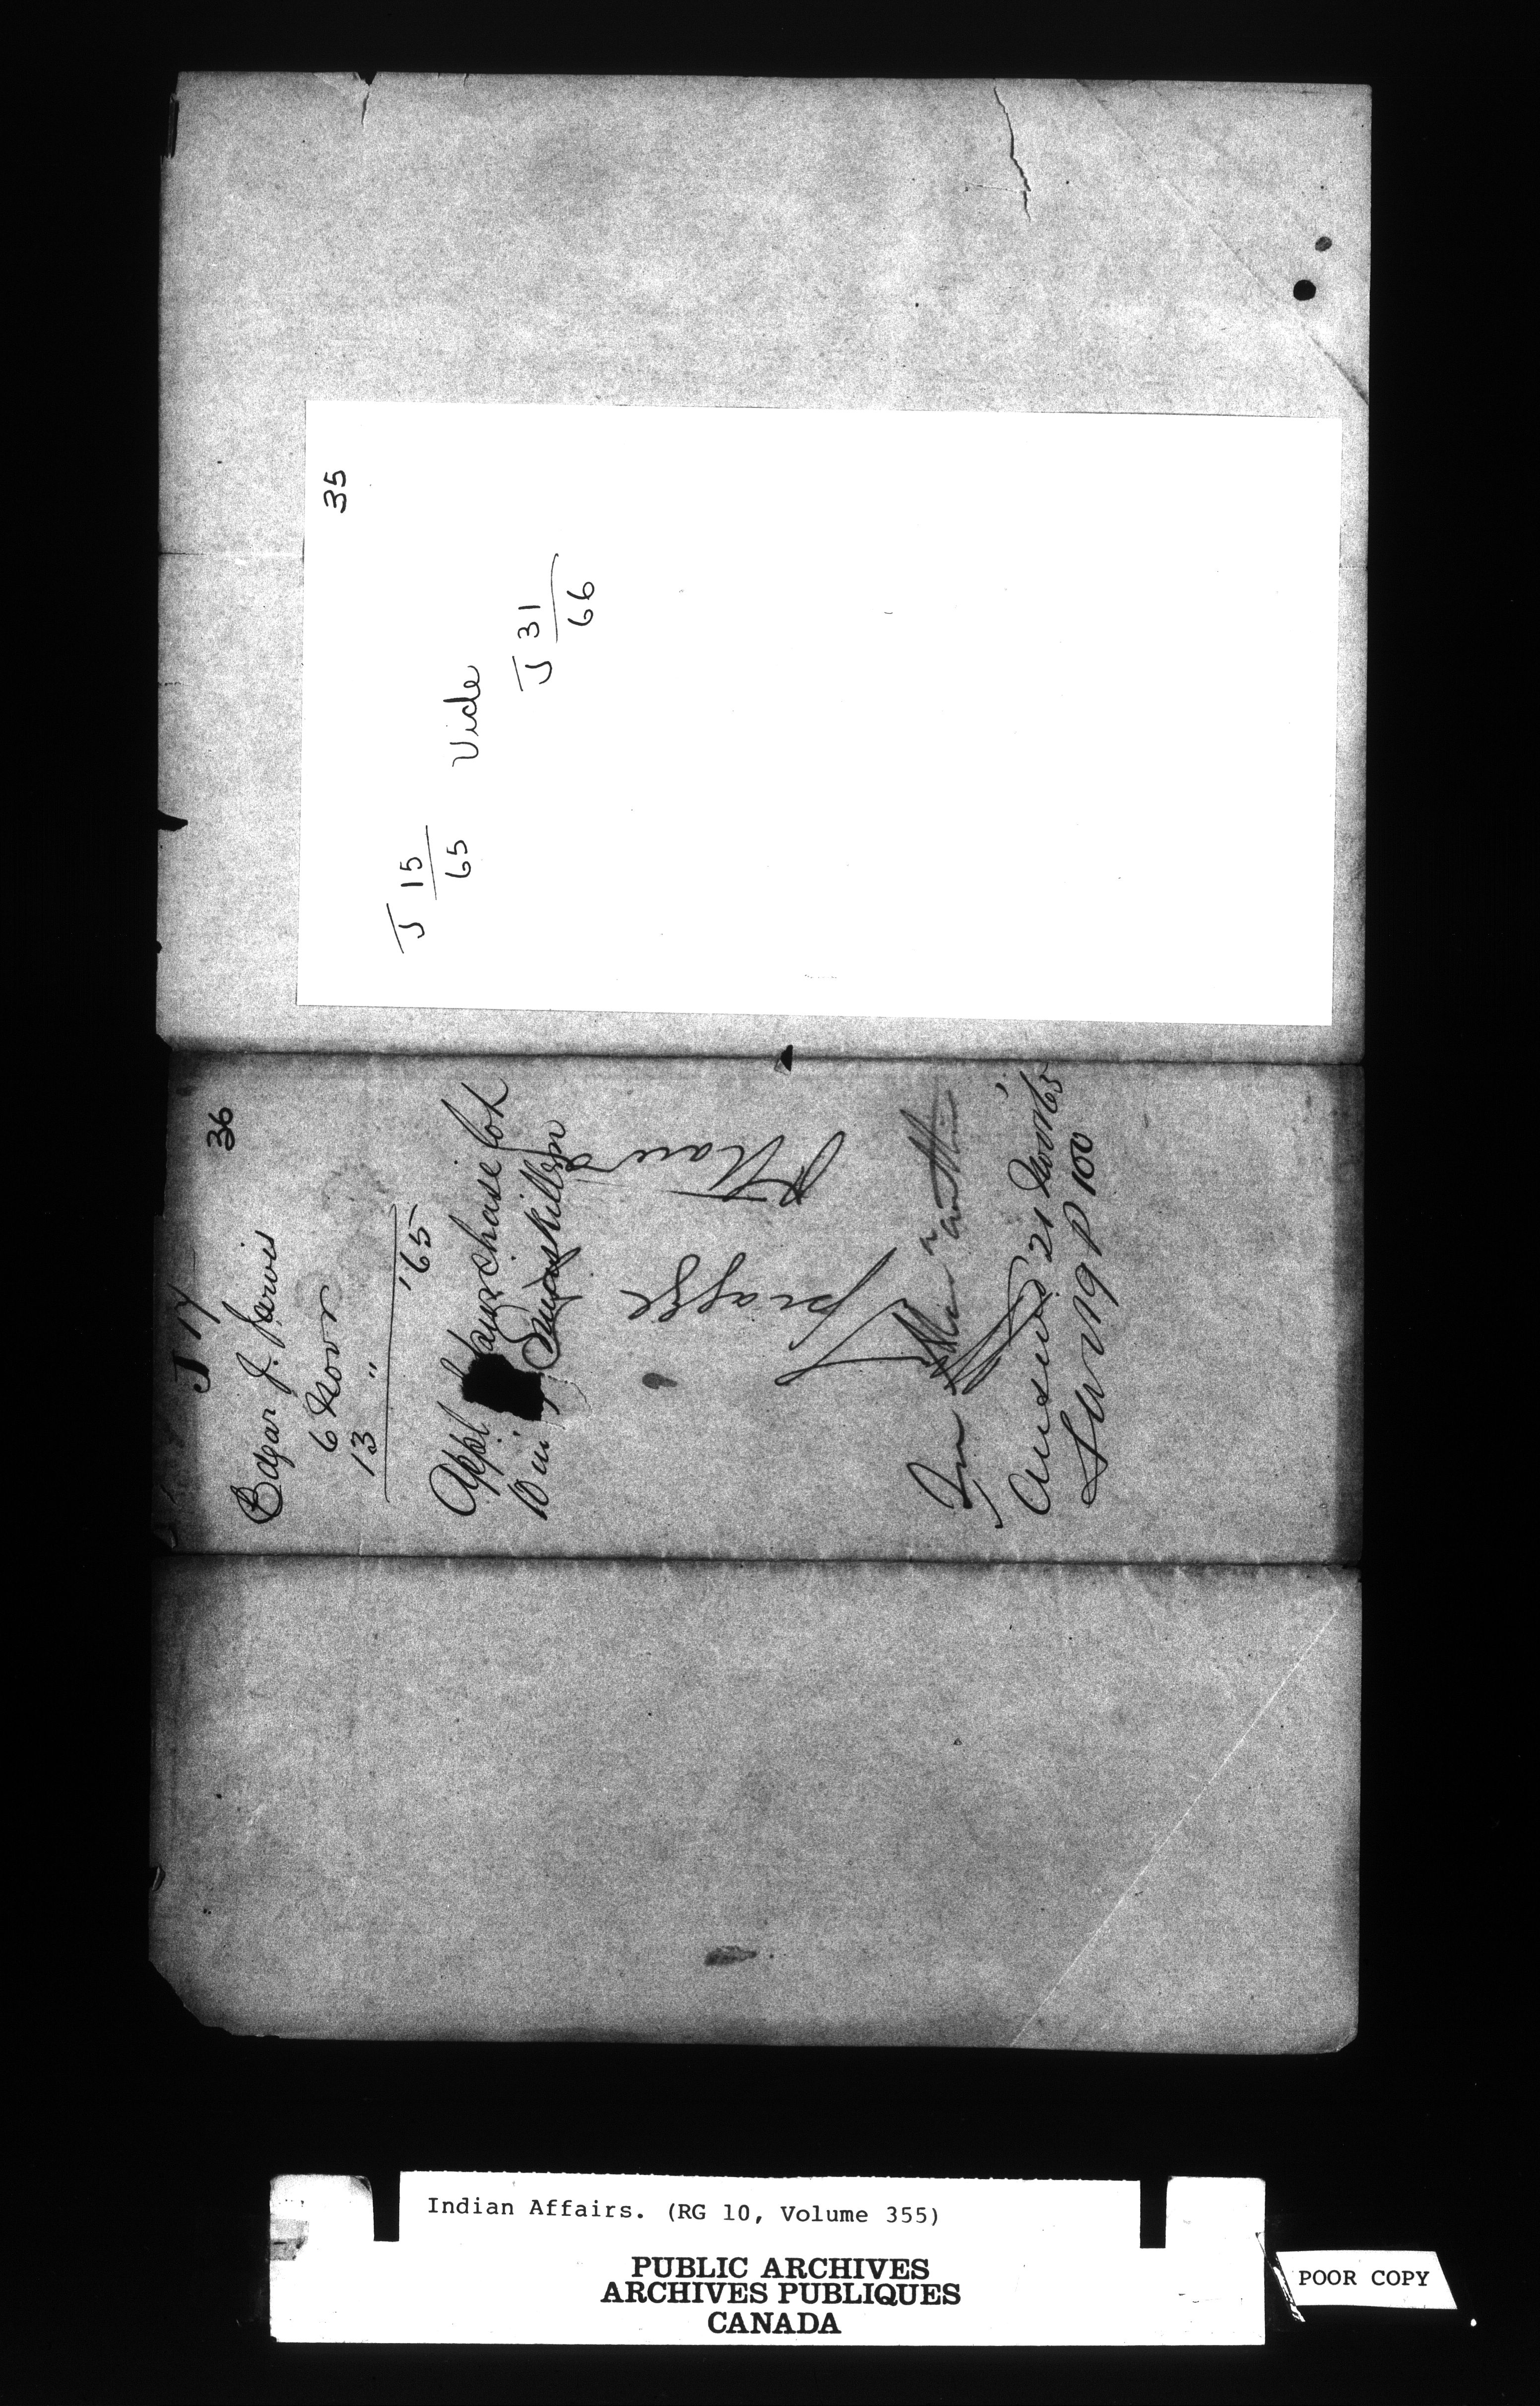 35
J 15/65 Vide
J 31/66
36
J 17
Edgar J. Jarvis
6 Novr
13 "
'65
Appl purchase lot
10 in Enniskillen
Spragge
answd 21 Nov 65
P 100
Indian Affairs. (RG 10, Volume 355)
PUBLIC ARCHIVES
ARCHIVES PUBLIQUES
CANADA
POOR COPY